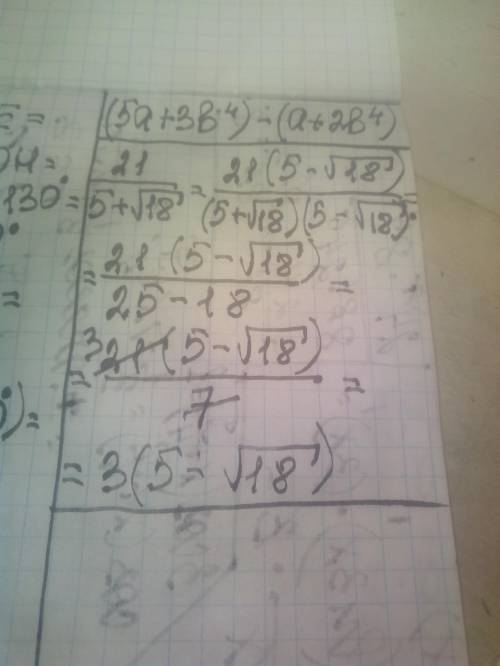 (5a+3b⁴)-(a+2b⁴)
21/(5+√18) = 21(5-√18)/((5+√18)(5-√18)) =
= 21(5-√18)/(25-18) =
130° =
= 3 21(5-√18)/7 =
= 3(5-√18)